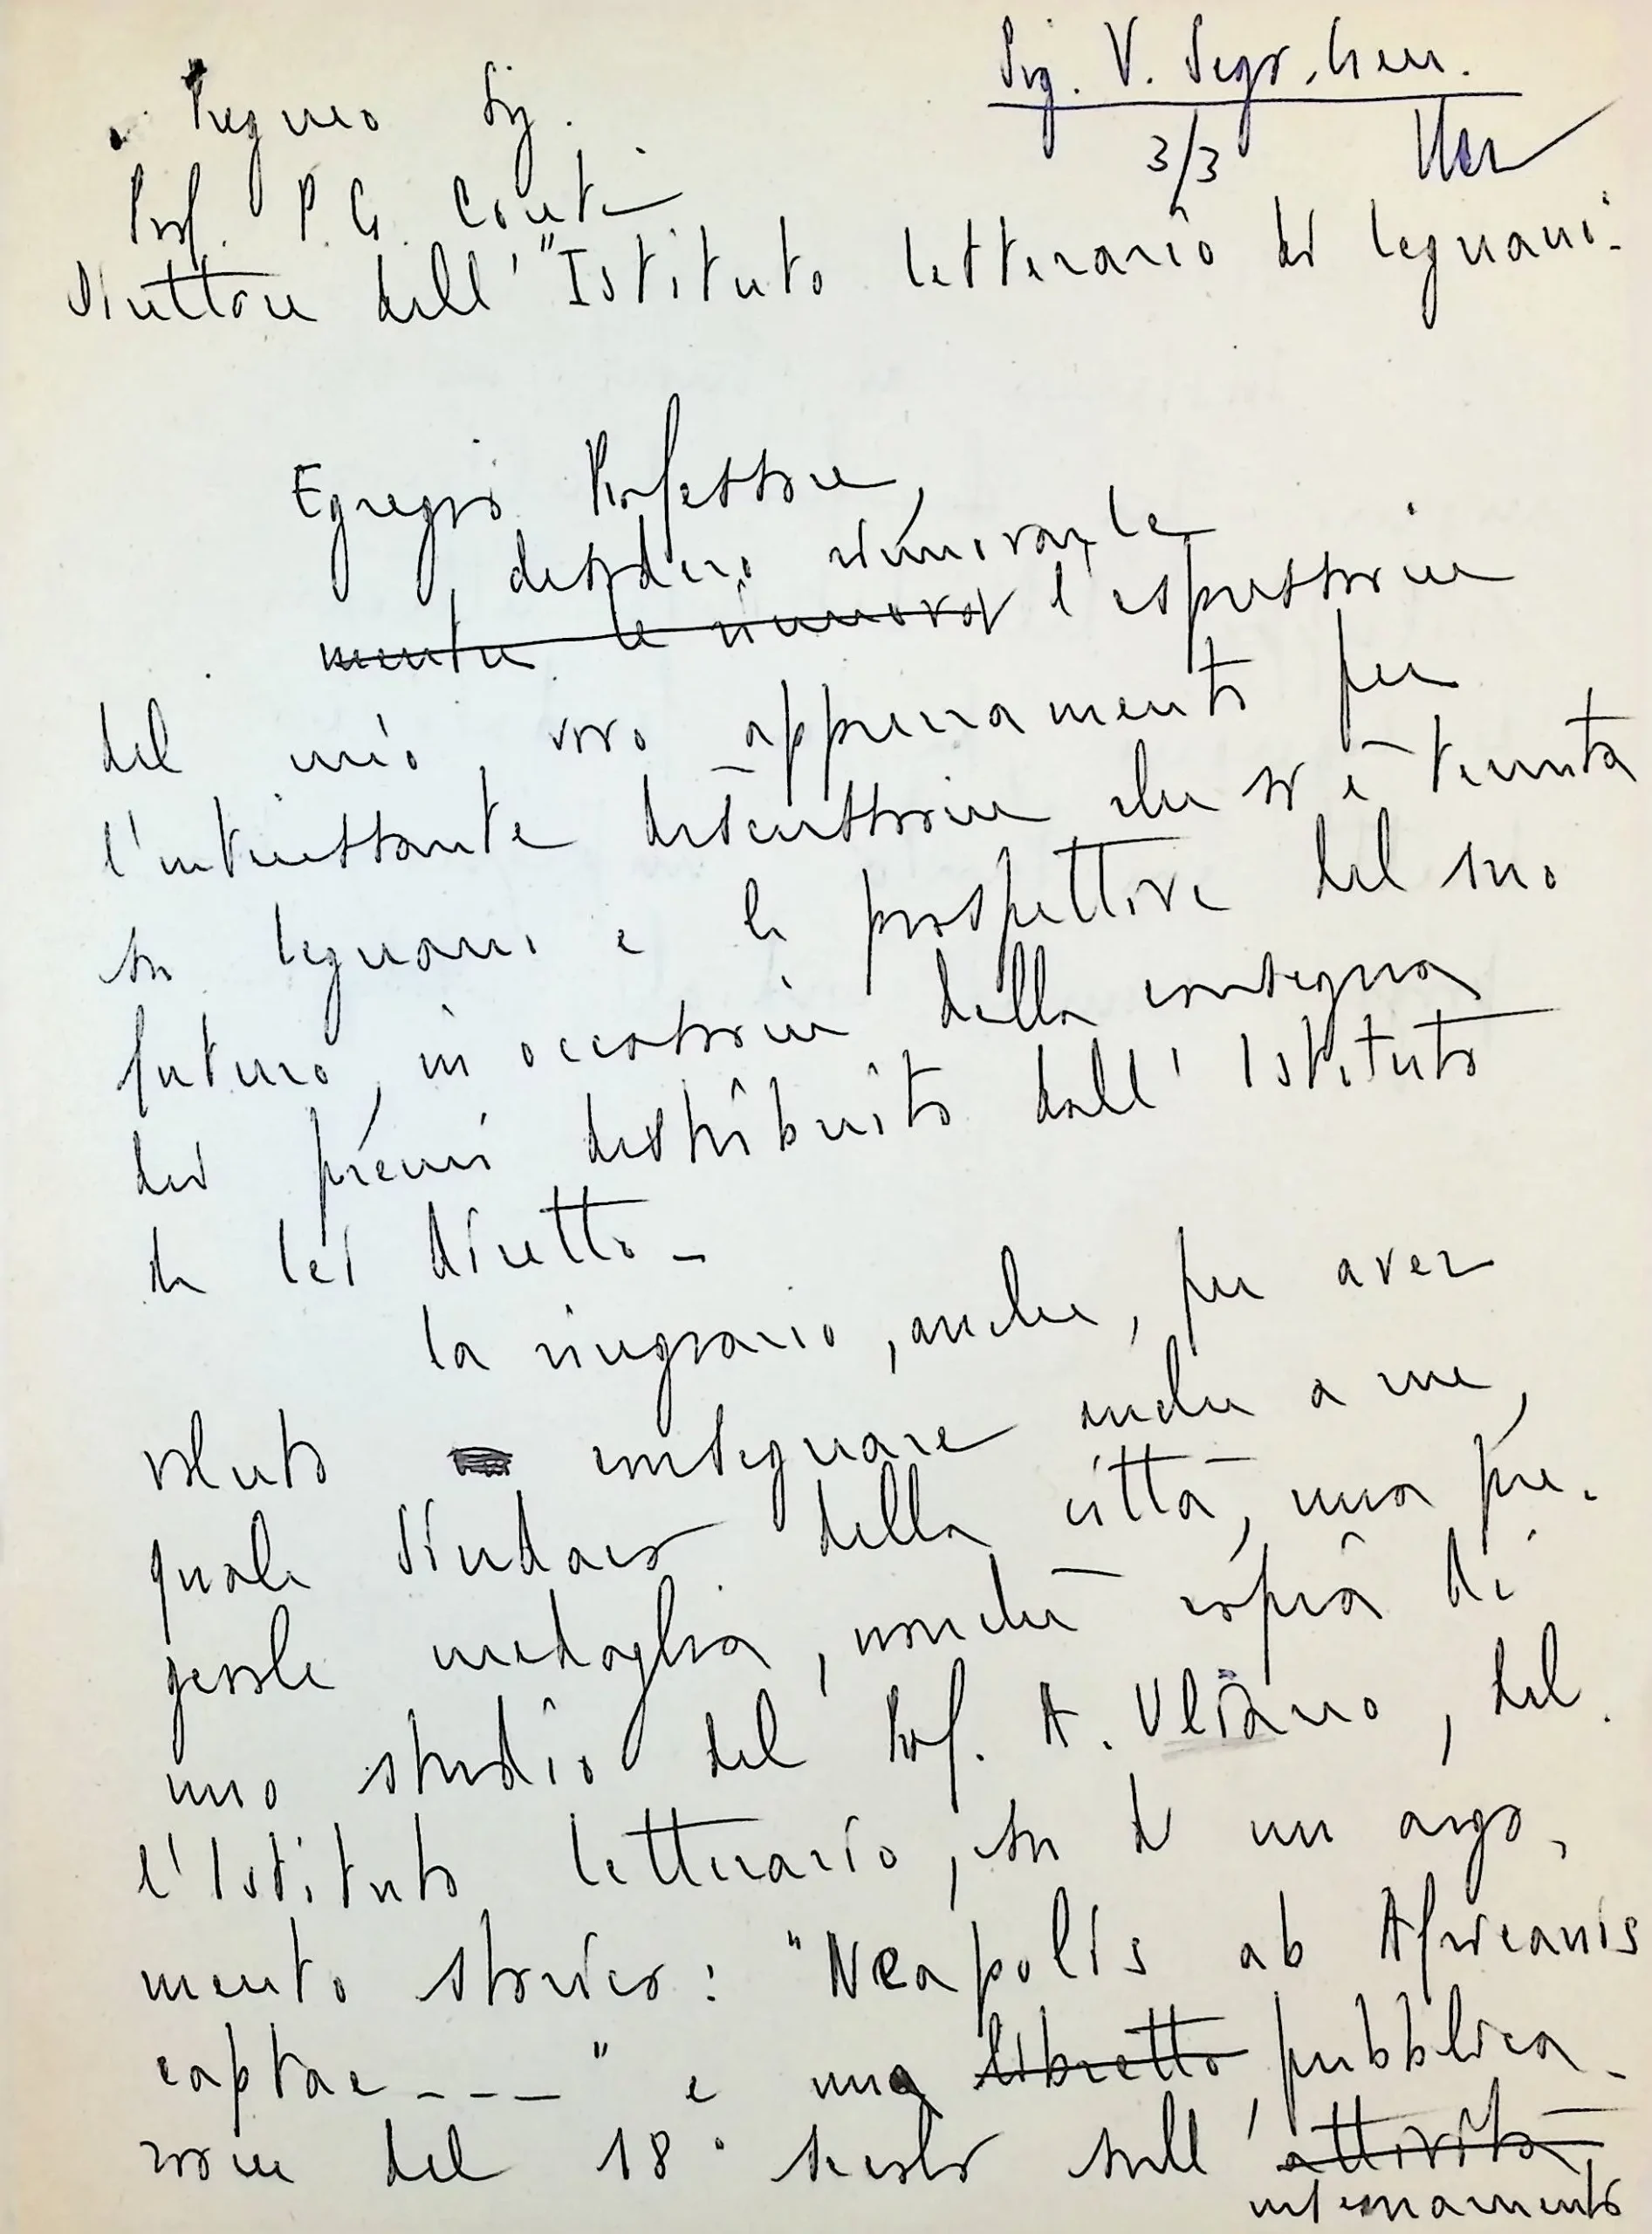 Sig. V. Segr. Gen.
3/3
Pregmo Sig.
Prof. P. G. Conti
Direttore dell' "Istituto letterario di Legnani"
Egregio Professore,
desidero rinnovarle
mentre le rinnovo l'espressione
del mio vivo apprezzamento per
l'interessante discussione che si è tenuta
su Legnani e le prospettive del suo
futuro, in occasione della consegna
dei premi distribuiti dall' Istituto
da lei diretto -
la ringrazio, anche, per aver
voluto consegnare anche a me,
quale Sindaco della città, una pre-
gevole medaglia, nonchè copia di
uno studio del Prof. A. Uliano, del-
l'Istituto letterario, su di un argo-
mento storico: "Neapolis ab Africanis
captae ---" e una libretto pubblica-
zione del 18° secolo sull' attività
insegnamento